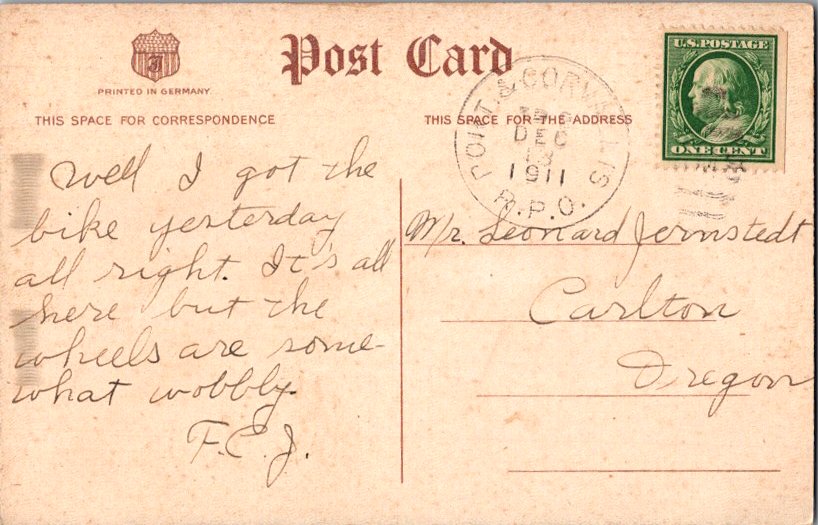 Post Card
PRINTED IN GERMANY
THIS SPACE FOR CORRESPONDENCE
THIS SPACE FOR THE ADDRESS
U.S. POSTAGE
ONE CENT
PORT. & CORVALLIS
DEC
1911
R.P.O.
Well I got the
bike yesterday
all right. It's all
here but the
wheels are some-
what wobbly.
F.E.J.
Mr. Leonard Jernstedt
Carlton
Oregon